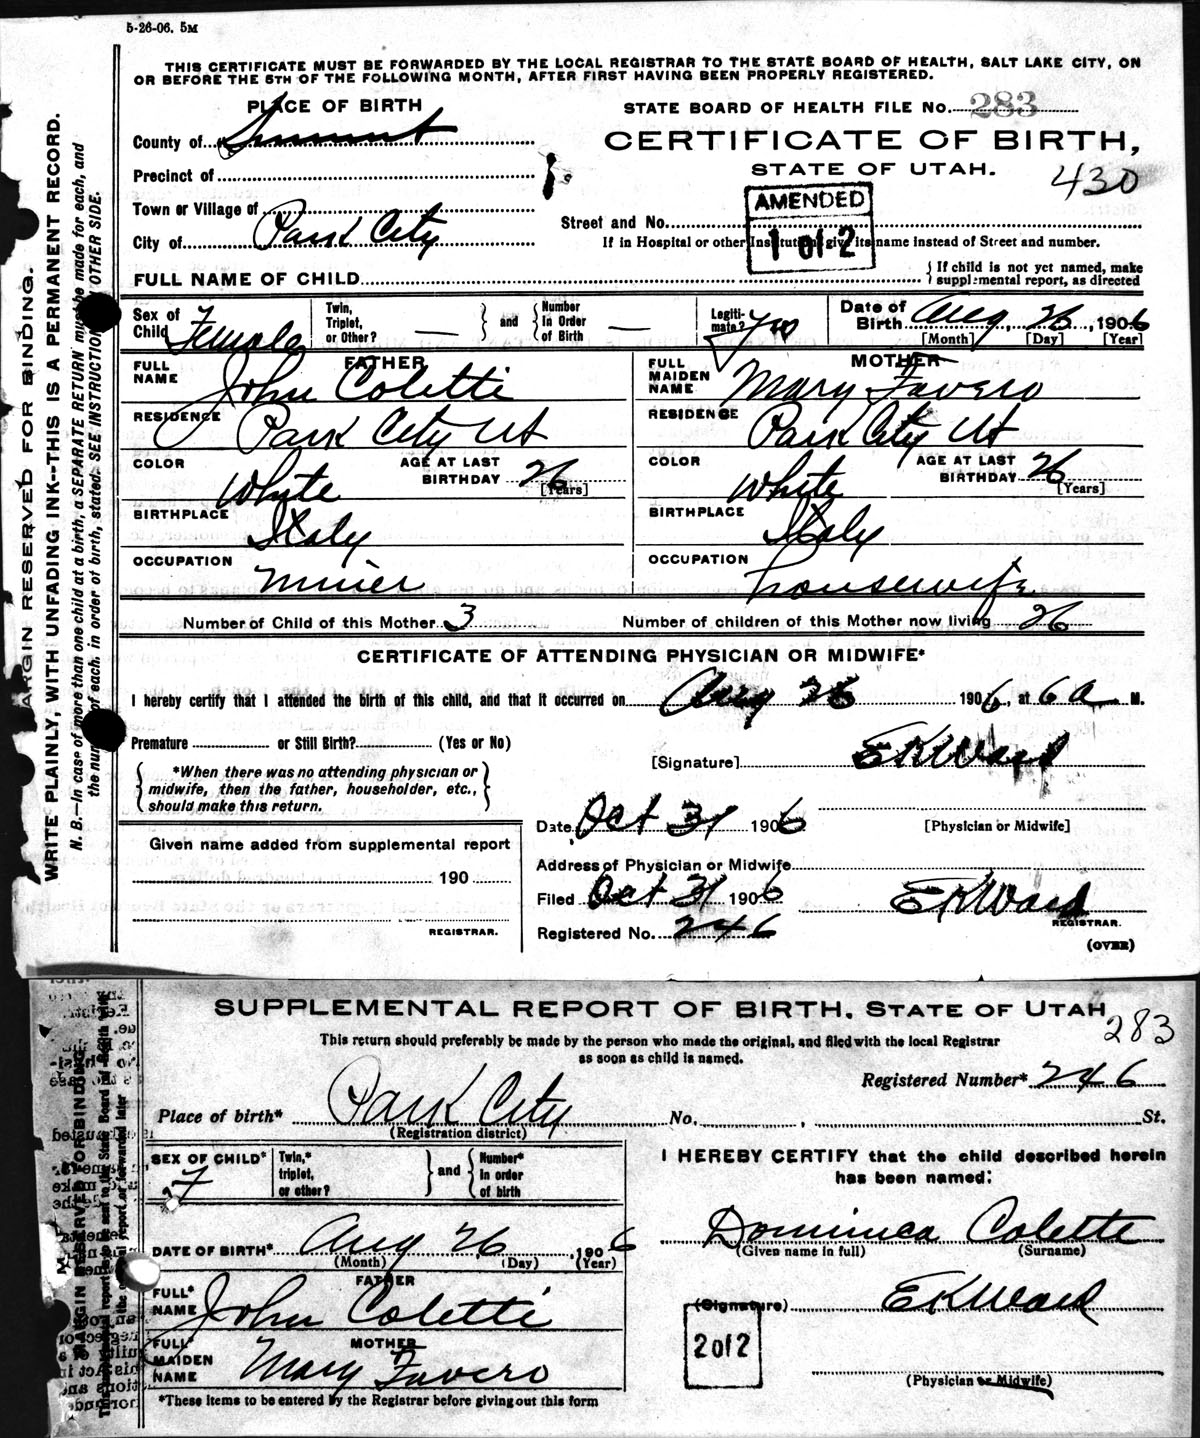 5-26-06. 5M
THIS CERTIFICATE MUST BE FORWARDED BY THE LOCAL REGISTRAR TO THE STATE BOARD OF HEALTH, SALT LAKE CITY, ON
OR BEFORE THE 5TH OF THE FOLLOWING MONTH, AFTER FIRST HAVING BEEN PROPERLY REGISTERED.
PLACE OF BIRTH
STATE BOARD OF HEALTH FILE No. 283
County of Summit
CERTIFICATE OF BIRTH,
STATE OF UTAH.
430
Precinct of
AMENDED
1 of 2
Town or Village of
Street and No.
City of Park City
If in Hospital or other Institution, give its name instead of Street and number.
FULL NAME OF CHILD
If child is not yet named, make
supplemental report, as directed
Sex of Child Female
Twin, Triplet, or Other? —
and
Number In Order of Birth —
Legiti-mate? Yes
Date of Birth Aug 26, 1906
[Month] [Day] [Year]
FATHER
MOTHER
FULL NAME John Coletti
FULL MAIDEN NAME Mary Favero
RESIDENCE Park City Ut
RESIDENCE Park City Ut
COLOR White
AGE AT LAST BIRTHDAY 26 [Years]
COLOR White
AGE AT LAST BIRTHDAY 26 [Years]
BIRTHPLACE Italy
BIRTHPLACE Italy
OCCUPATION Miner
OCCUPATION housewife
Number of Child of this Mother 3
Number of children of this Mother now living 26
CERTIFICATE OF ATTENDING PHYSICIAN OR MIDWIFE*
I hereby certify that I attended the birth of this child, and that it occurred on Aug 26 1906, at 6 a M.
Premature or Still Birth? (Yes or No)
[Signature] EKWard
*When there was no attending physician or
midwife, then the father, householder, etc.,
should make this return.
Date, Oct 31 1906
[Physician or Midwife]
Given name added from supplemental report
190
REGISTRAR.
Address of Physician or Midwife
Filed Oct 31 1906
EKWard
REGISTRAR.
Registered No. 246
(OVER)
MARGIN RESERVED FOR BINDING.
WRITE PLAINLY, WITH UNFADING INK--THIS IS A PERMANENT RECORD.
N. B.—In case of more than one child at a birth, a SEPARATE RETURN must be made for each, and
the number of each, in order of birth, stated. SEE INSTRUCTIONS OTHER SIDE.
SUPPLEMENTAL REPORT OF BIRTH, STATE OF UTAH
283
This return should preferably be made by the person who made the original, and filed with the local Registrar
as soon as child is named.
Registered Number* 246
Place of birth* Park City No. , St.
(Registration district)
SEX OF CHILD* F
Twin,* triplet, or other?
and
Number* in order of birth
I HEREBY CERTIFY that the child described herein
has been named:
Dominica Colette
(Given name in full) (Surname)
DATE OF BIRTH* Aug 26, 1906
(Month) (Day) (Year)
FATHER
FULL* NAME John Coletti
(Signature) EKWard
MOTHER
FULL* MAIDEN NAME Mary Favero
2 of 2
(Physician or Midwife)
*These items to be entered by the Registrar before giving out this form